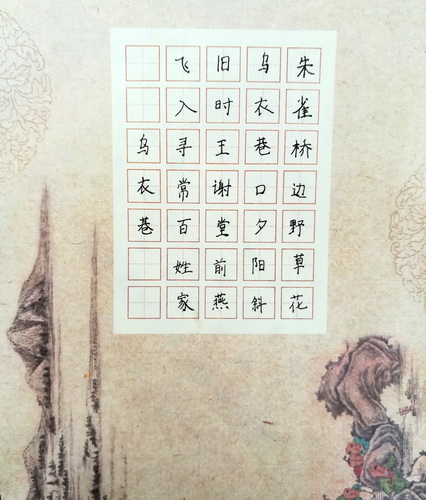 朱雀桥边野草花
乌衣巷口夕阳斜
旧时王谢堂前燕
飞入寻常百姓家
乌衣巷